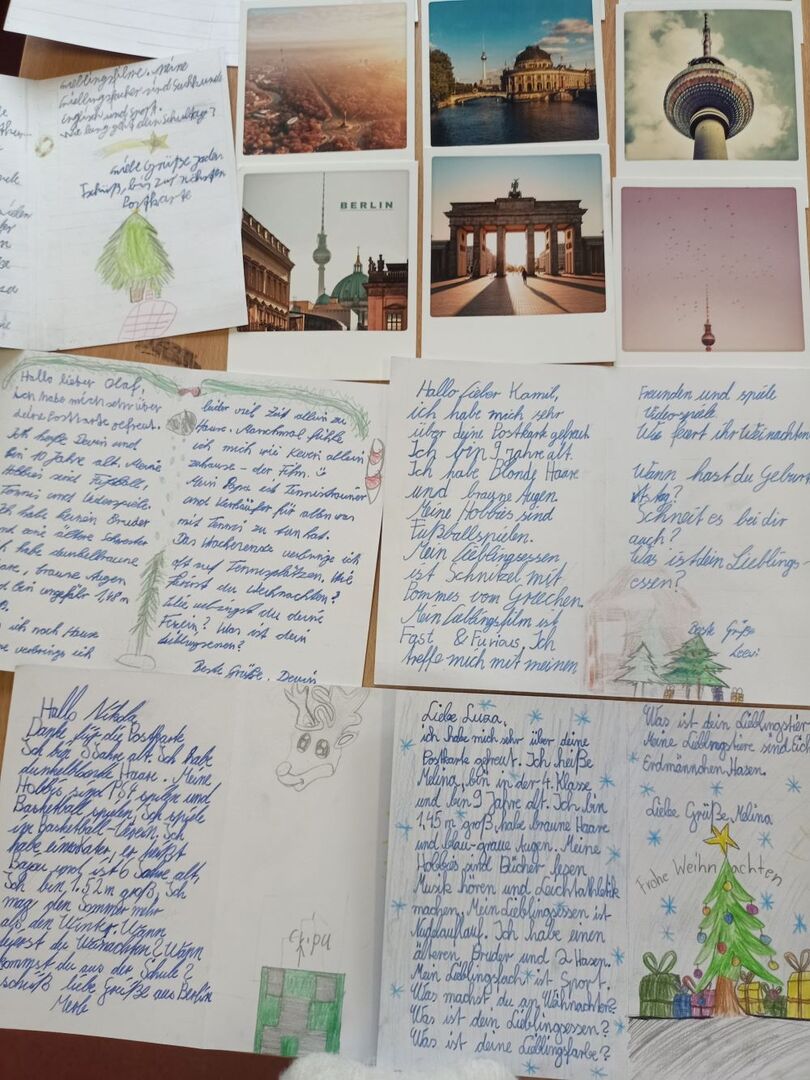 Lieblingsfilme. Meine
Lieblingsfächer sind Sachkunde
Englisch und Sport.
Wie lang geht dein Schultag?
Liebe Grüße
Tschüß, bis zur nächsten
Postkarte
BERLIN
Hallo lieber Olaf,
ich habe mich sehr über
deine Postkarte gefreut.
Ich heiße Devin und
bin 10 Jahre alt. Meine
Hobbies sind Fußball,
Tennis und Videospiele.
Ich habe keinen Bruder
und eine ältere Schwester
Ich habe dunkelbraune
braune Augen
und bin ungefähr 1,48 m
ich nach Hause
verbringe ich
leider viel Zeit allein zu
Hause. Manchmal fühle
ich mich wie Kevin allein
zuhause - der Film. :)
Mein Papa ist Tennistrainer
und Verkäufer für alles was
mit Tennis zu tun hat.
Das Wochenende verbringe ich
oft auf Tennisplätzen. Wie
feierst du Weihnachten?
Wie verbringst du deine
Ferien? Was ist dein
Lieblingsessen?
Beste Grüße, Devin
Hallo lieber Kamil,
ich habe mich sehr
über deine Postkarte gefreut.
Ich bin 9 Jahre alt.
Ich habe Blonde Haare
und braune Augen
Meine Hobbies sind
Fußballspielen.
Mein Lieblingsessen
ist Schnitzel mit
Pommes vom Griechen.
Mein Lieblingsfilm ist
Fast & Furious. Ich
treffe mich mit meinen
Freunden und spiele
Videospiele
Wie feiert ihr Weinachten
Wann hast du Geburts
tag?
Schneit es bei dir
auch?
Was ist dein Lieblings-
essen?
Beste Grüße
Leevi
Hallo Nikola
Danke für die Postkarte
Ich bin 9 Jahre alt. Ich habe
dunkelblonde Haare. Meine
Hobbis sind PS4 spielen und
Basketball spielen, Ich spiele
im Basketball-Verein. Ich
habe einen Kater, er heißt
und ist 6 Jahre alt.
Ich bin 1,52 m groß. Ich
mag den Sommer mehr
als den Winter. Wann
feierst du Weinachten? Wann
kommst du aus der Schule?
tschüß liebe Grüße aus Berlin
Merle
Liebe Luza,
ich habe mich sehr über deine
Postkarte gefreut. Ich heiße
Melina, bin in der 4. Klasse
und bin 9 Jahre alt. Ich bin
1,45 m groß, habe braune Haare
und blau-graue Augen. Meine
Hobbies sind Bücher lesen
Musik hören und Leichtathletik
machen. Mein Lieblingsessen ist
Nudelauflauf. Ich habe einen
älteren Bruder und 2 Hasen.
Mein Lieblingsfach ist Sport.
Was machst du an Wähnachten?
Was ist dein Lieblingsessen?
Was ist deine Lieblingsfarbe?
Was ist dein Lieblingstier
Meine Lieblingstiere sind
Erdmännchen, Hasen.
Liebe Grüße, Melina
Frohe Weihnachten